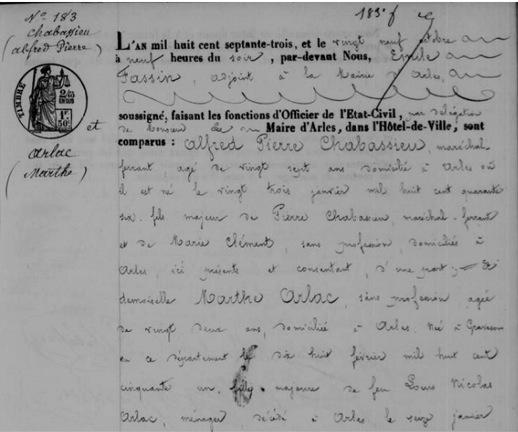 N° 183
Chabassieu
(Alfred Pierre)
TIMBRE
2/10
EN SUS
1F
50c
et
Arlac
(Marthe)
183
L'AN mil huit cent septante-trois, et le vingt neuf octobre
à neuf heures du soir, par-devant Nous, Emile
Fassin, adjoint à la Mairie d'Arles,
soussigné, faisant les fonctions d'Officier de l'Etat-Civil, par délégation
de Monsieur Le Maire d'Arles, dans l'Hôtel-de-Ville, sont
comparus : Alfred Pierre Chabassieu, maréchal
ferrant agé de vingt sept ans domicilié à Arles où
il est né le vingt trois janvier mil huit cent quarante
six, fils majeur de Pierre Chabassieu, maréchal-ferrant
et de Marie Clément, sans profession, domiciliés à
Arles, ici présents et consentant, d'une part, Et
demoiselle Marthe Arlac, sans profession agée
de vingt deux ans, domiciliée à Arles. Née à Graveson
en ce département le dix huit février mil huit cent
cinquante un, fille majeure de feu Louis Nicolas
Arlac, ménager décédé à Arles le seize janvier